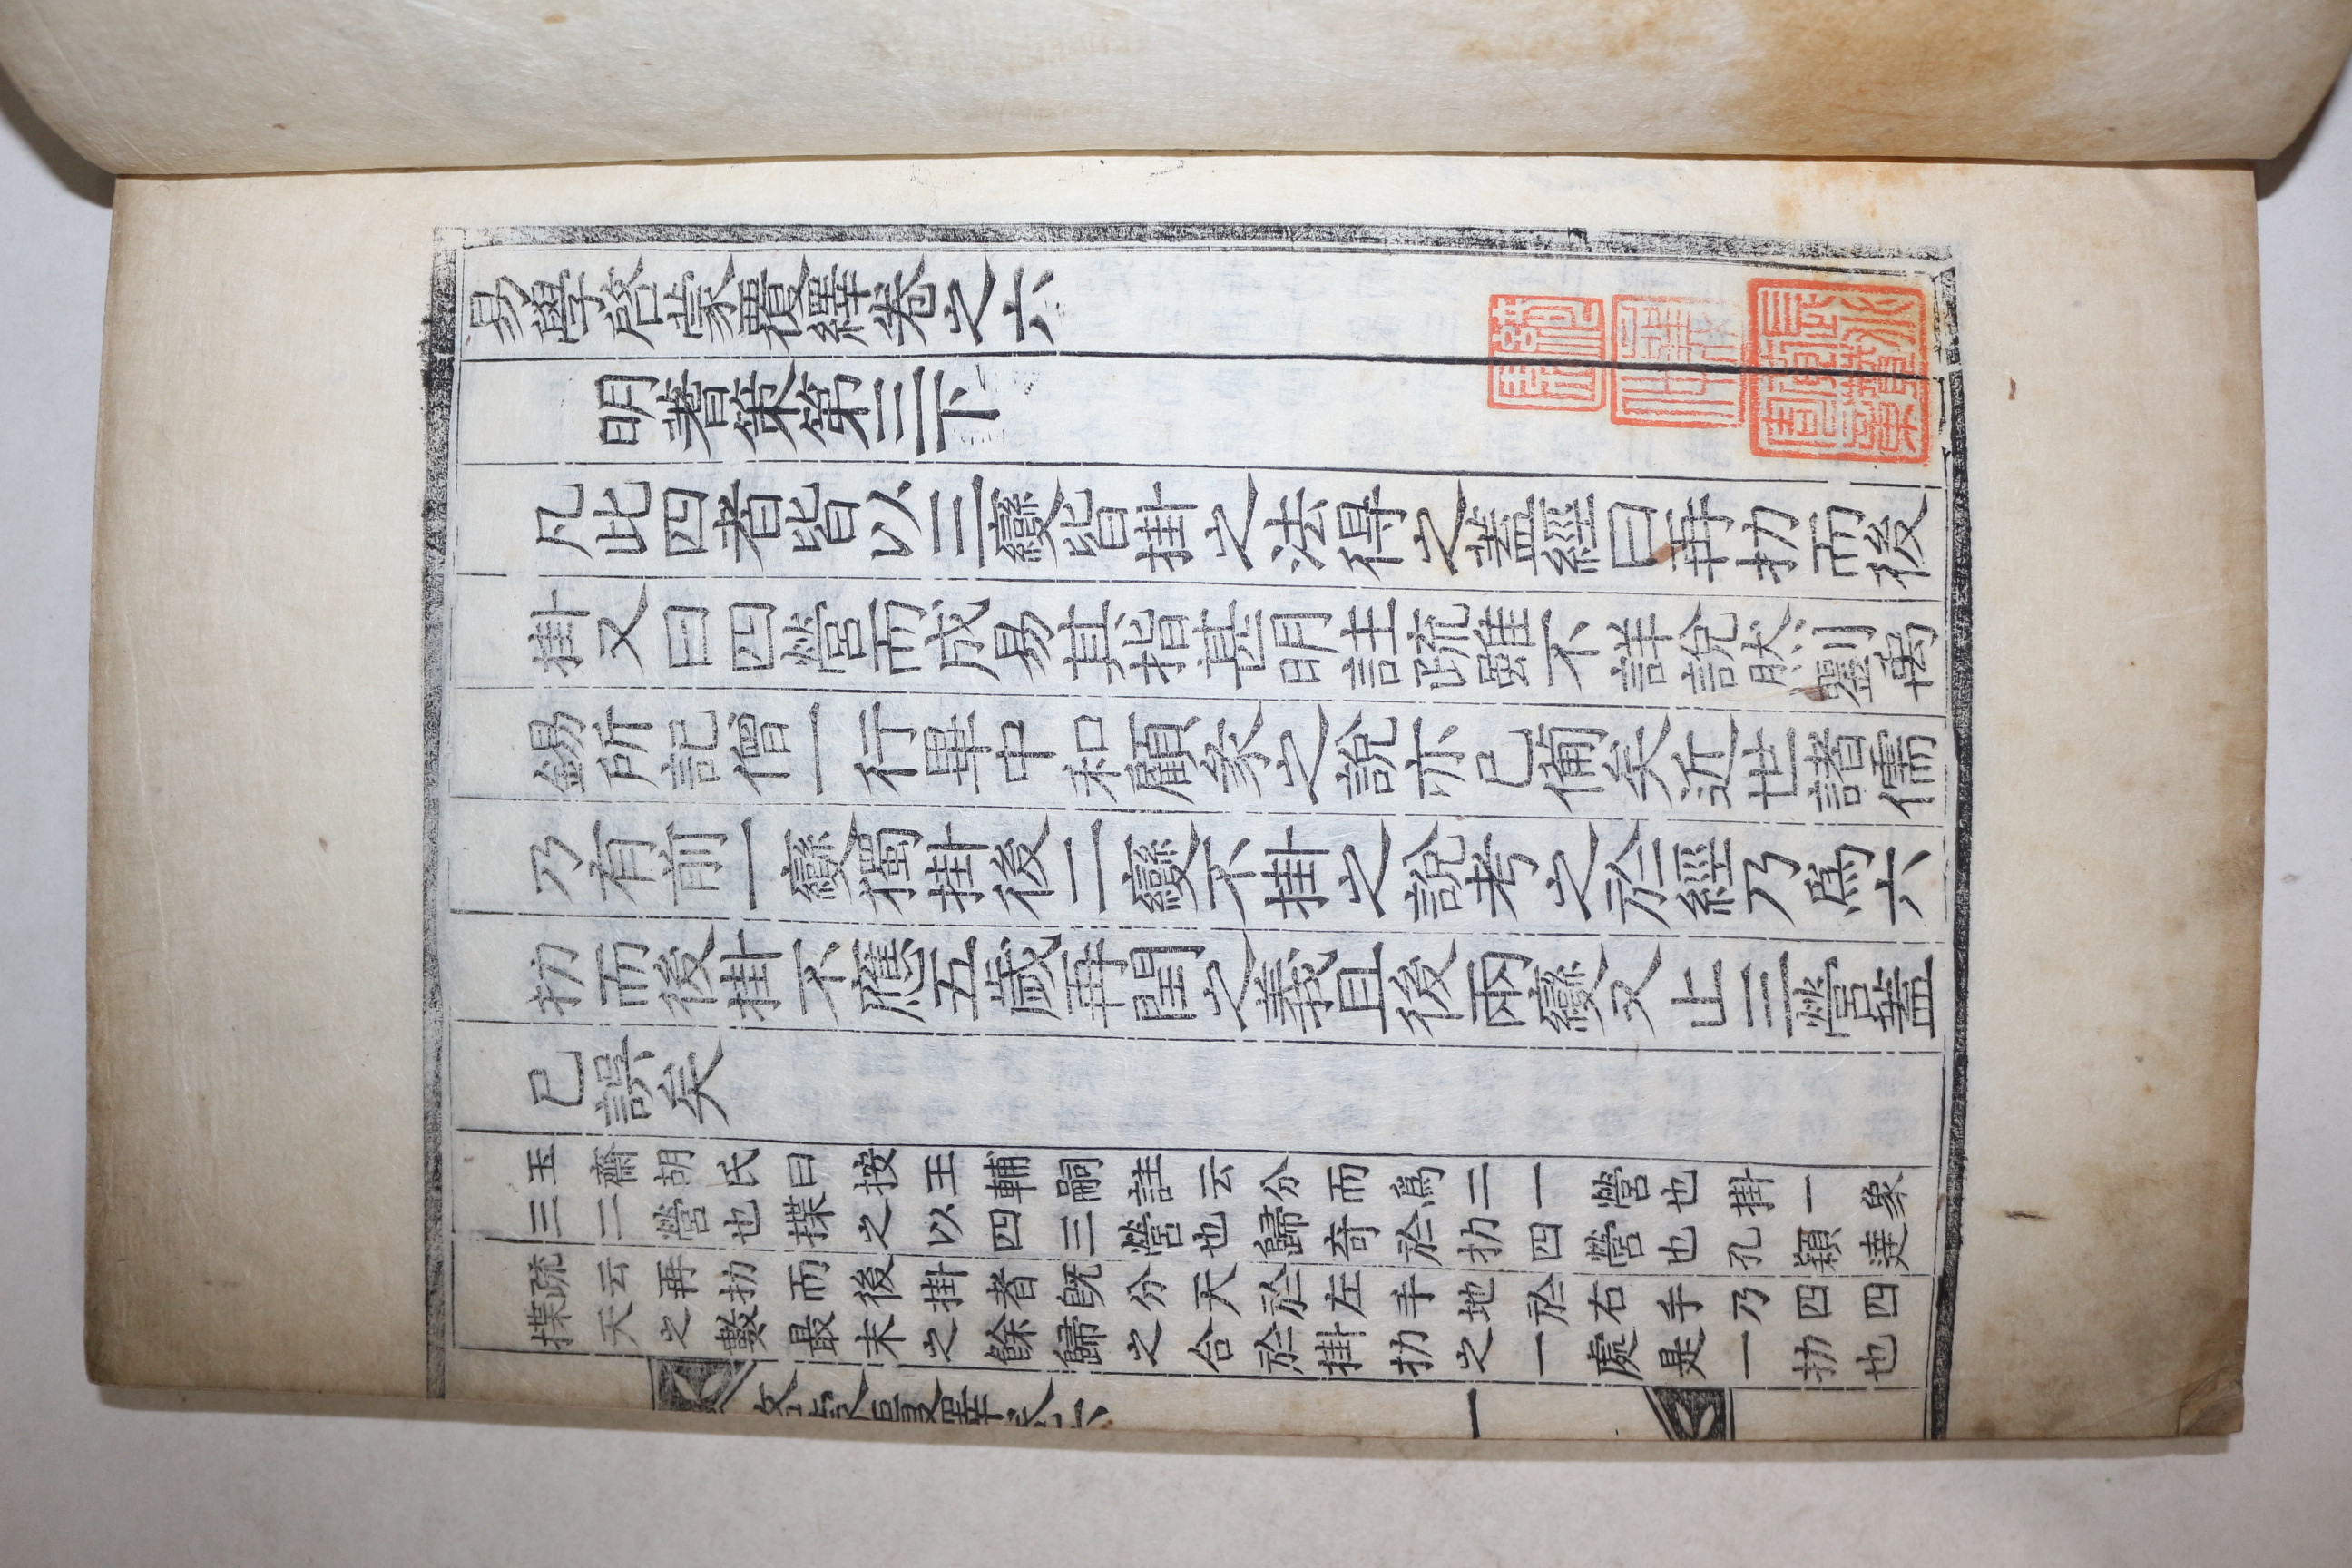 易學啓蒙覆繹卷之六
明蓍策第三下
凡此四者皆以三變皆掛之法得之蓋經曰再扐而後
掛又曰四營而成易其指甚明註疏雖不詳說然劉禹
錫所記僧一行畢中和顧彖之說亦已備矣近世諸儒
乃有前一變獨掛後二變不掛之說考之於經乃爲六
扐而後掛不應五歲再閏之義且後兩變又止三營蓋
已誤矣
玉齋胡氏曰按王輔嗣註云分而爲二一營也掛一象
三二營也揲之以四三營也歸奇於扐四營也孔穎達
疏云再扐而後掛者既分天於左手地於右手乃四四
揲天之數最末之餘歸之合於掛扐之一處是一扐也